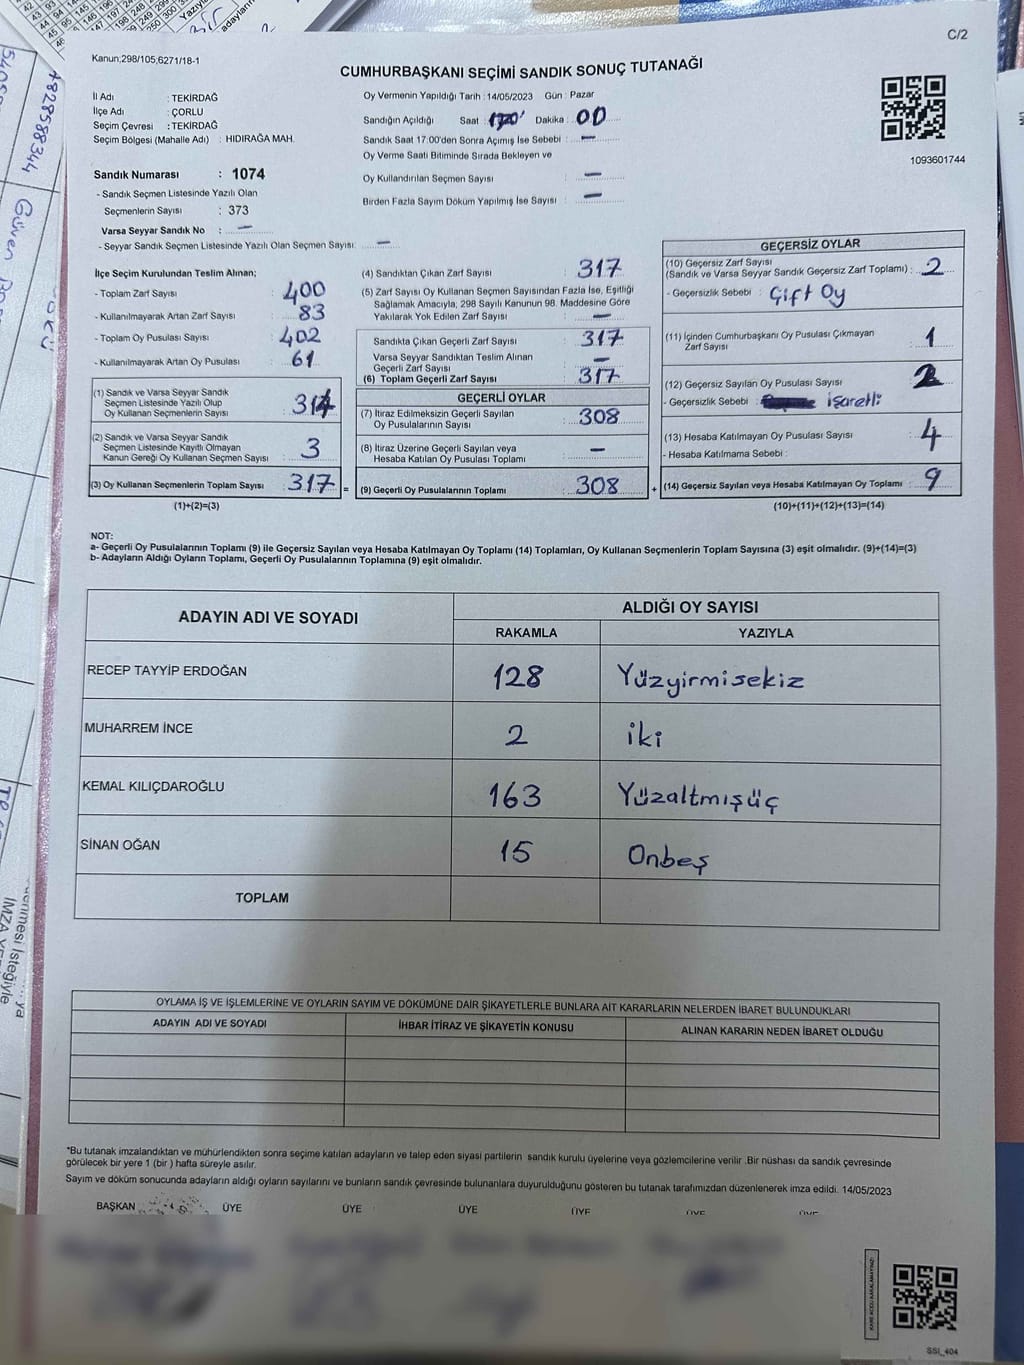 C/2
Kanun;298/105,6271/18-1
CUMHURBAŞKANI SEÇİMİ SANDIK SONUÇ TUTANAĞI
İl Adı : TEKİRDAĞ
İlçe Adı : ÇORLU
Seçim Çevresi : TEKİRDAĞ
Seçim Bölgesi (Mahalle Adı) : HIDIRAĞA MAH.
Oy Vermenin Yapıldığı Tarih : 14/05/2023 Gün : Pazar
Sandığın Açıldığı Saat Dakika : 00
Sandık Saat 17:00'den Sonra Açımış İse Sebebi : —
Oy Verme Saati Bitiminde Sırada Bekleyen ve
Oy Kullandırılan Seçmen Sayısı : —
Birden Fazla Sayım Döküm Yapılmış İse Sayısı : —
1093601744
Sandık Numarası : 1074
- Sandık Seçmen Listesinde Yazılı Olan
Seçmenlerin Sayısı : 373
Varsa Seyyar Sandık No : —
- Seyyar Sandık Seçmen Listesinde Yazılı Olan Seçmen Sayısı: —
İlçe Seçim Kurulundan Teslim Alınan;
- Toplam Zarf Sayısı : 400
- Kullanılmayarak Artan Zarf Sayısı : 83
- Toplam Oy Pusulası Sayısı : 402
- Kullanılmayarak Artan Oy Pusulası : 61
(1) Sandık ve Varsa Seyyar Sandık
Seçmen Listesinde Yazılı Olup
Oy Kullanan Seçmenlerin Sayısı : 314
(2) Sandık ve Varsa Seyyar Sandık
Seçmen Listesinde Kayıtlı Olmayan
Kanun Gereği Oy Kullanan Seçmen Sayısı : 3
(3) Oy Kullanan Seçmenlerin Toplam Sayısı : 317 =
(1)+(2)=(3)
(4) Sandıktan Çıkan Zarf Sayısı : 317
(5) Zarf Sayısı Oy Kullanan Seçmen Sayısından Fazla İse, Eşitliği
Sağlamak Amacıyla, 298 Sayılı Kanunun 98. Maddesine Göre
Yakılarak Yok Edilen Zarf Sayısı : —
Sandıkta Çıkan Geçerli Zarf Sayısı : 317
Varsa Seyyar Sandıktan Teslim Alınan
Geçerli Zarf Sayısı : —
(6) Toplam Geçerli Zarf Sayısı : 317
GEÇERLİ OYLAR
(7) İtiraz Edilmeksizin Geçerli Sayılan
Oy Pusulalarının Sayısı : 308
(8) İtiraz Üzerine Geçerli Sayılan veya
Hesaba Katılan Oy Pusulası Toplamı : —
(9) Geçerli Oy Pusulalarının Toplamı : 308 +
GEÇERSİZ OYLAR
(10) Geçersiz Zarf Sayısı
(Sandık ve Varsa Seyyar Sandık Geçersiz Zarf Toplamı) : 2
- Geçersizlik Sebebi : Çift Oy
(11) İçinden Cumhurbaşkanı Oy Pusulası Çıkmayan
Zarf Sayısı : 1
(12) Geçersiz Sayılan Oy Pusulası Sayısı : 2
- Geçersizlik Sebebi : işaretli
(13) Hesaba Katılmayan Oy Pusulası Sayısı : 4
- Hesaba Katılmama Sebebi :
(14) Geçersiz Sayılan veya Hesaba Katılmayan Oy Toplamı : 9
(10)+(11)+(12)+(13)=(14)
NOT:
a- Geçerli Oy Pusulalarının Toplamı (9) ile Geçersiz Sayılan veya Hesaba Katılmayan Oy Toplamı (14) Toplamları, Oy Kullanan Seçmenlerin Toplam Sayısına (3) eşit olmalıdır. (9)+(14)=(3)
b- Adayların Aldığı Oyların Toplamı, Geçerli Oy Pusulalarının Toplamına (9) eşit olmalıdır.
ADAYIN ADI VE SOYADI ALDIĞI OY SAYISI
RAKAMLA YAZIYLA
RECEP TAYYİP ERDOĞAN 128 Yüzyirmisekiz
MUHARREM İNCE 2 iki
KEMAL KILIÇDAROĞLU 163 Yüzaltmışüç
SİNAN OĞAN 15 Onbeş
TOPLAM
OYLAMA İŞ VE İŞLEMLERİNE VE OYLARIN SAYIM VE DÖKÜMÜNE DAİR ŞİKAYETLERLE BUNLARA AİT KARARLARIN NELERDEN İBARET BULUNDUKLARI
ADAYIN ADI VE SOYADI İHBAR İTİRAZ VE ŞİKAYETİN KONUSU ALINAN KARARIN NEDEN İBARET OLDUĞU
*Bu tutanak imzalandıktan ve mühürlendikten sonra seçime katılan adayların ve talep eden siyasi partilerin sandık kurulu üyelerine veya gözlemcilerine verilir .Bir nüshası da sandık çevresinde
görülecek bir yere 1 (bir ) hafta süreyle asılır.
Sayım ve döküm sonucunda adayların aldığı oyların sayılarını ve bunların sandık çevresinde bulunanlara duyurulduğunu gösteren bu tutanak tarafımızdan düzenlenerek imza edildi. 14/05/2023
BAŞKAN ÜYE ÜYE ÜYE ÜYE ÜYE ÜYE
SSI_404